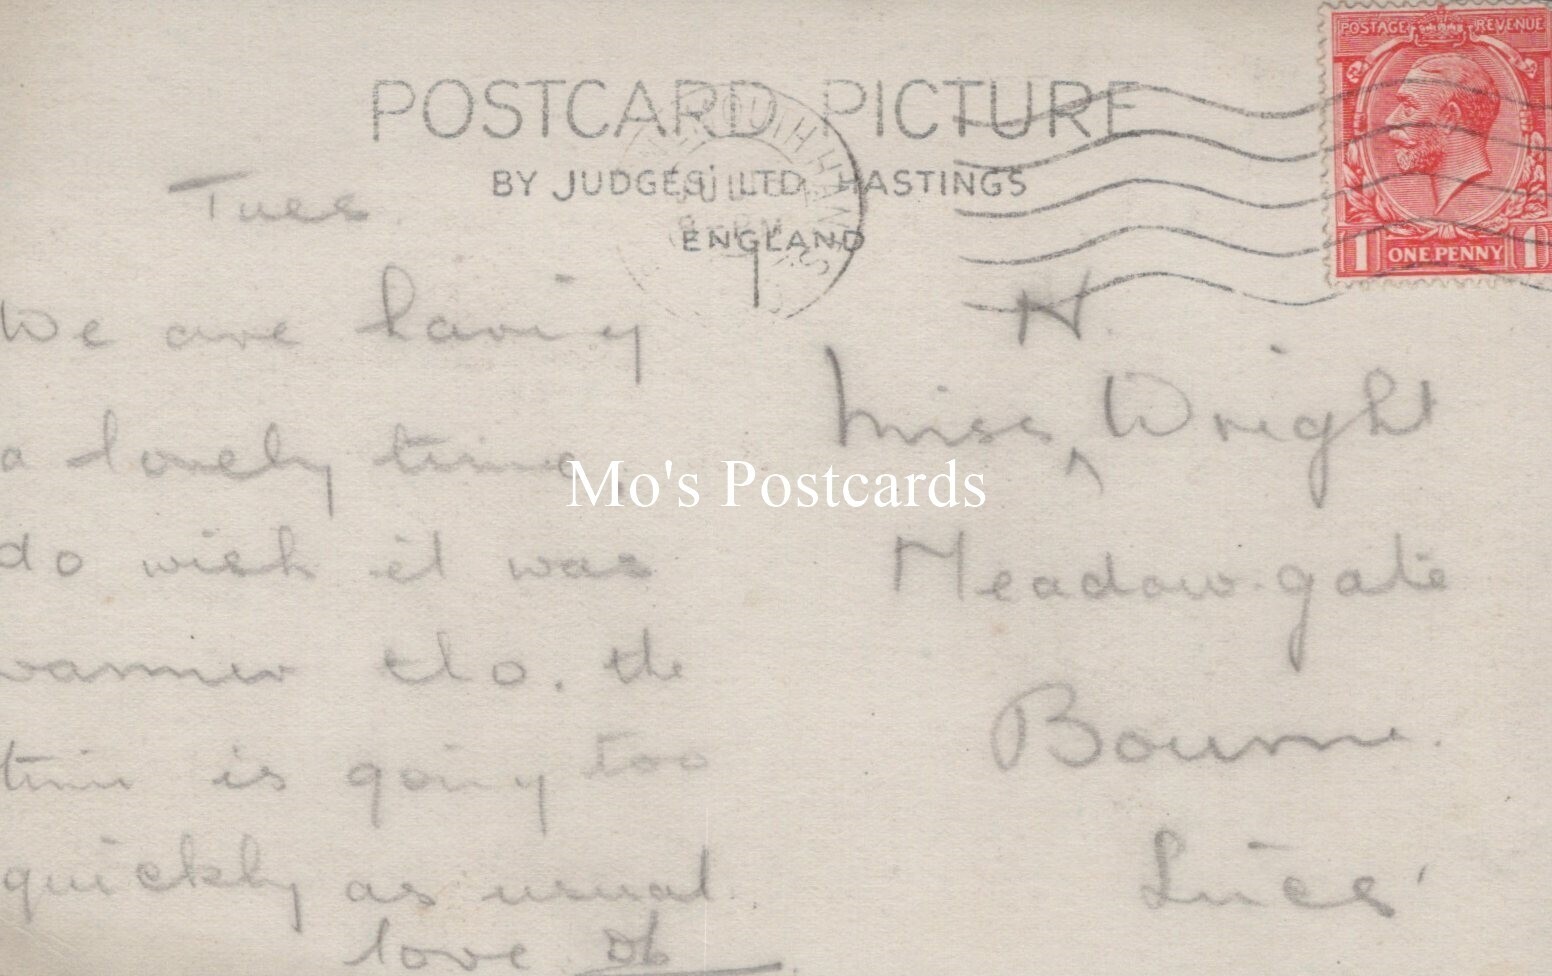 POSTCARD PICTURE
BY JUDGES' LTD HASTINGS
ENGLAND
POSTAGE REVENUE
1 ONE PENNY 1
Tues.
We are having
a lovely time,
do wish it was
warmer tho. the
time is going too
quickly as usual.
love
H.
Miss Wright
Meadow-gate
Bourne.
Lincs'
Mo's Postcards